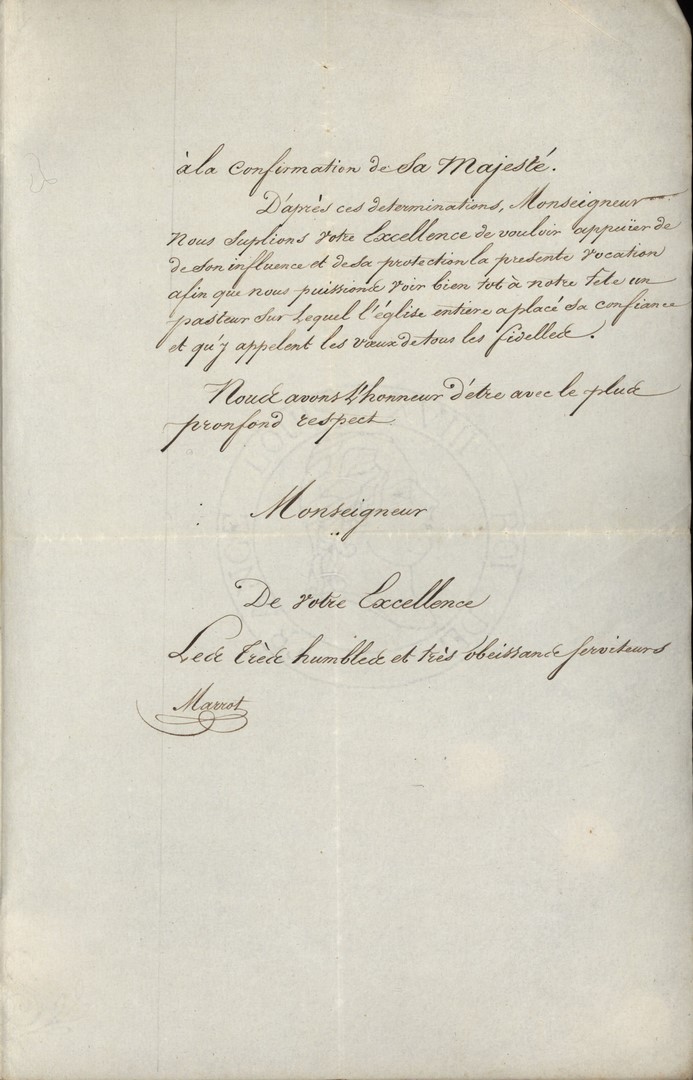 à la Confirmation de Sa Majesté.
D'après ces determinations, Monseigneur
Nous Suplions Votre Excellence de vouloir appuïer de
de son influence et de sa protection la presente Vocation
afin que nous puissions voir bien tot à notre tete un
pasteur sur Lequel l'église entiere a placé sa confiance
et qu'y appelent les vœux de tous les fidelles.
Nous avons L'honneur d'être avec le plus
pronfond respect
Monseigneur
De Votre Excellence
Les Très humbles et très obeissans Serviteurs
Marrot